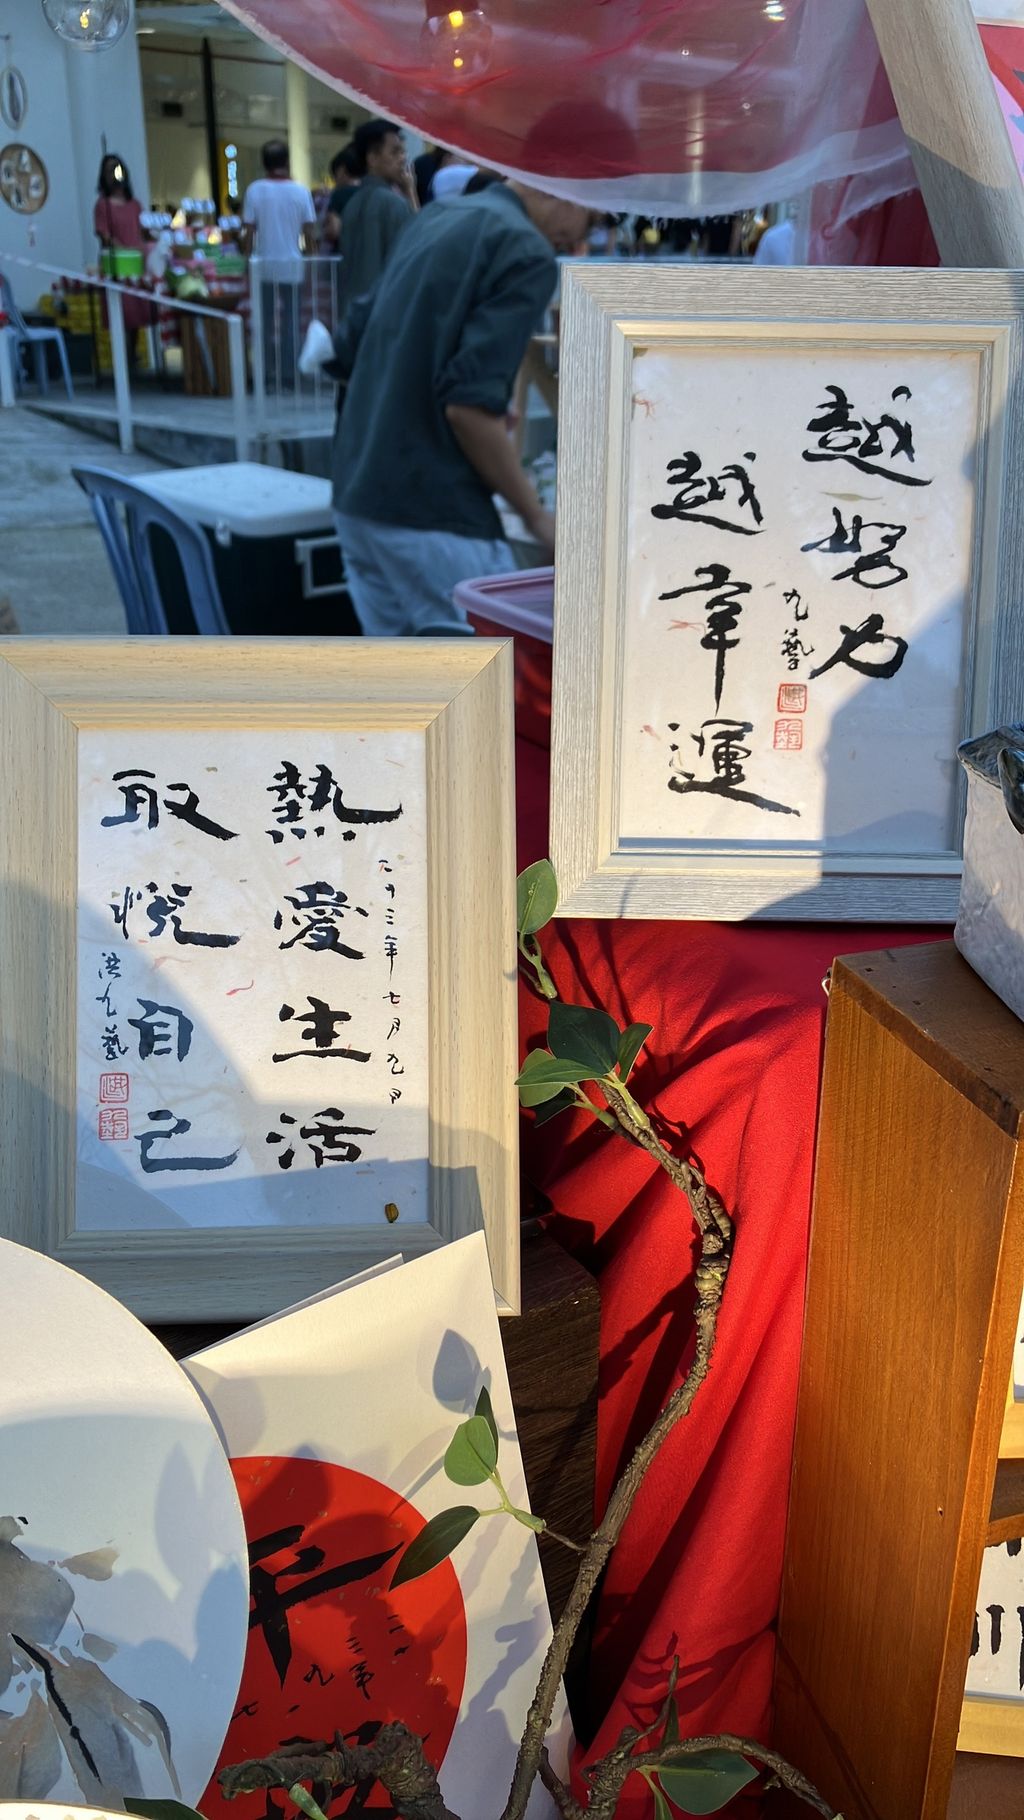 越努力
越幸運
九藝
二十三年七月九日
熱愛生活
取悅自己
洪九藝
平